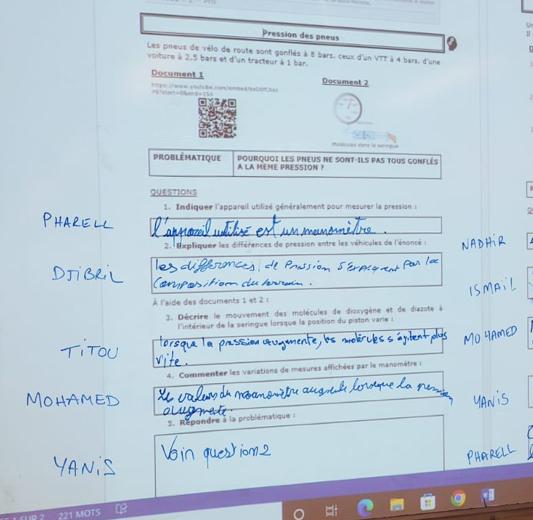 Pression des pneus
Les pneus de vélo de route sont gonflés à 8 bars, ceux d'un VTT à 4 bars, d'une
voiture à 2,5 bars et d'un tracteur à 1 bar.
Document 1
Document 2
Molécules dans la seringue
PROBLÉMATIQUE
POURQUOI LES PNEUS NE SONT-ILS PAS TOUS GONFLÉS
À LA MÊME PRESSION ?
QUESTIONS
1. Indiquer l'appareil utilisé généralement pour mesurer la pression :
PHARELL
l'appareil utilisé est un manomètre.
2. Expliquer les différences de pression entre les véhicules de l'énoncé :
NADHIR
DJIBRIL
les différences de pression s'expliquent par la
composition du terrain.
ISMAIL
À l'aide des documents 1 et 2 :
3. Décrire le mouvement des molécules de dioxygène et de diazote à
l'intérieur de la seringue lorsque la position du piston varie :
TITOU
lorsque la pression augmente, les molécules s'agitent plus
vite.
MOHAMED
4. Commenter les variations de mesures affichées par le manomètre :
MOHAMED
valeur du manomètre augmente lorsque la pression
augmente.
YANIS
5. Répondre à la problématique :
YANIS
Voir question 2
PHARELL
SUR 2
221 MOTS